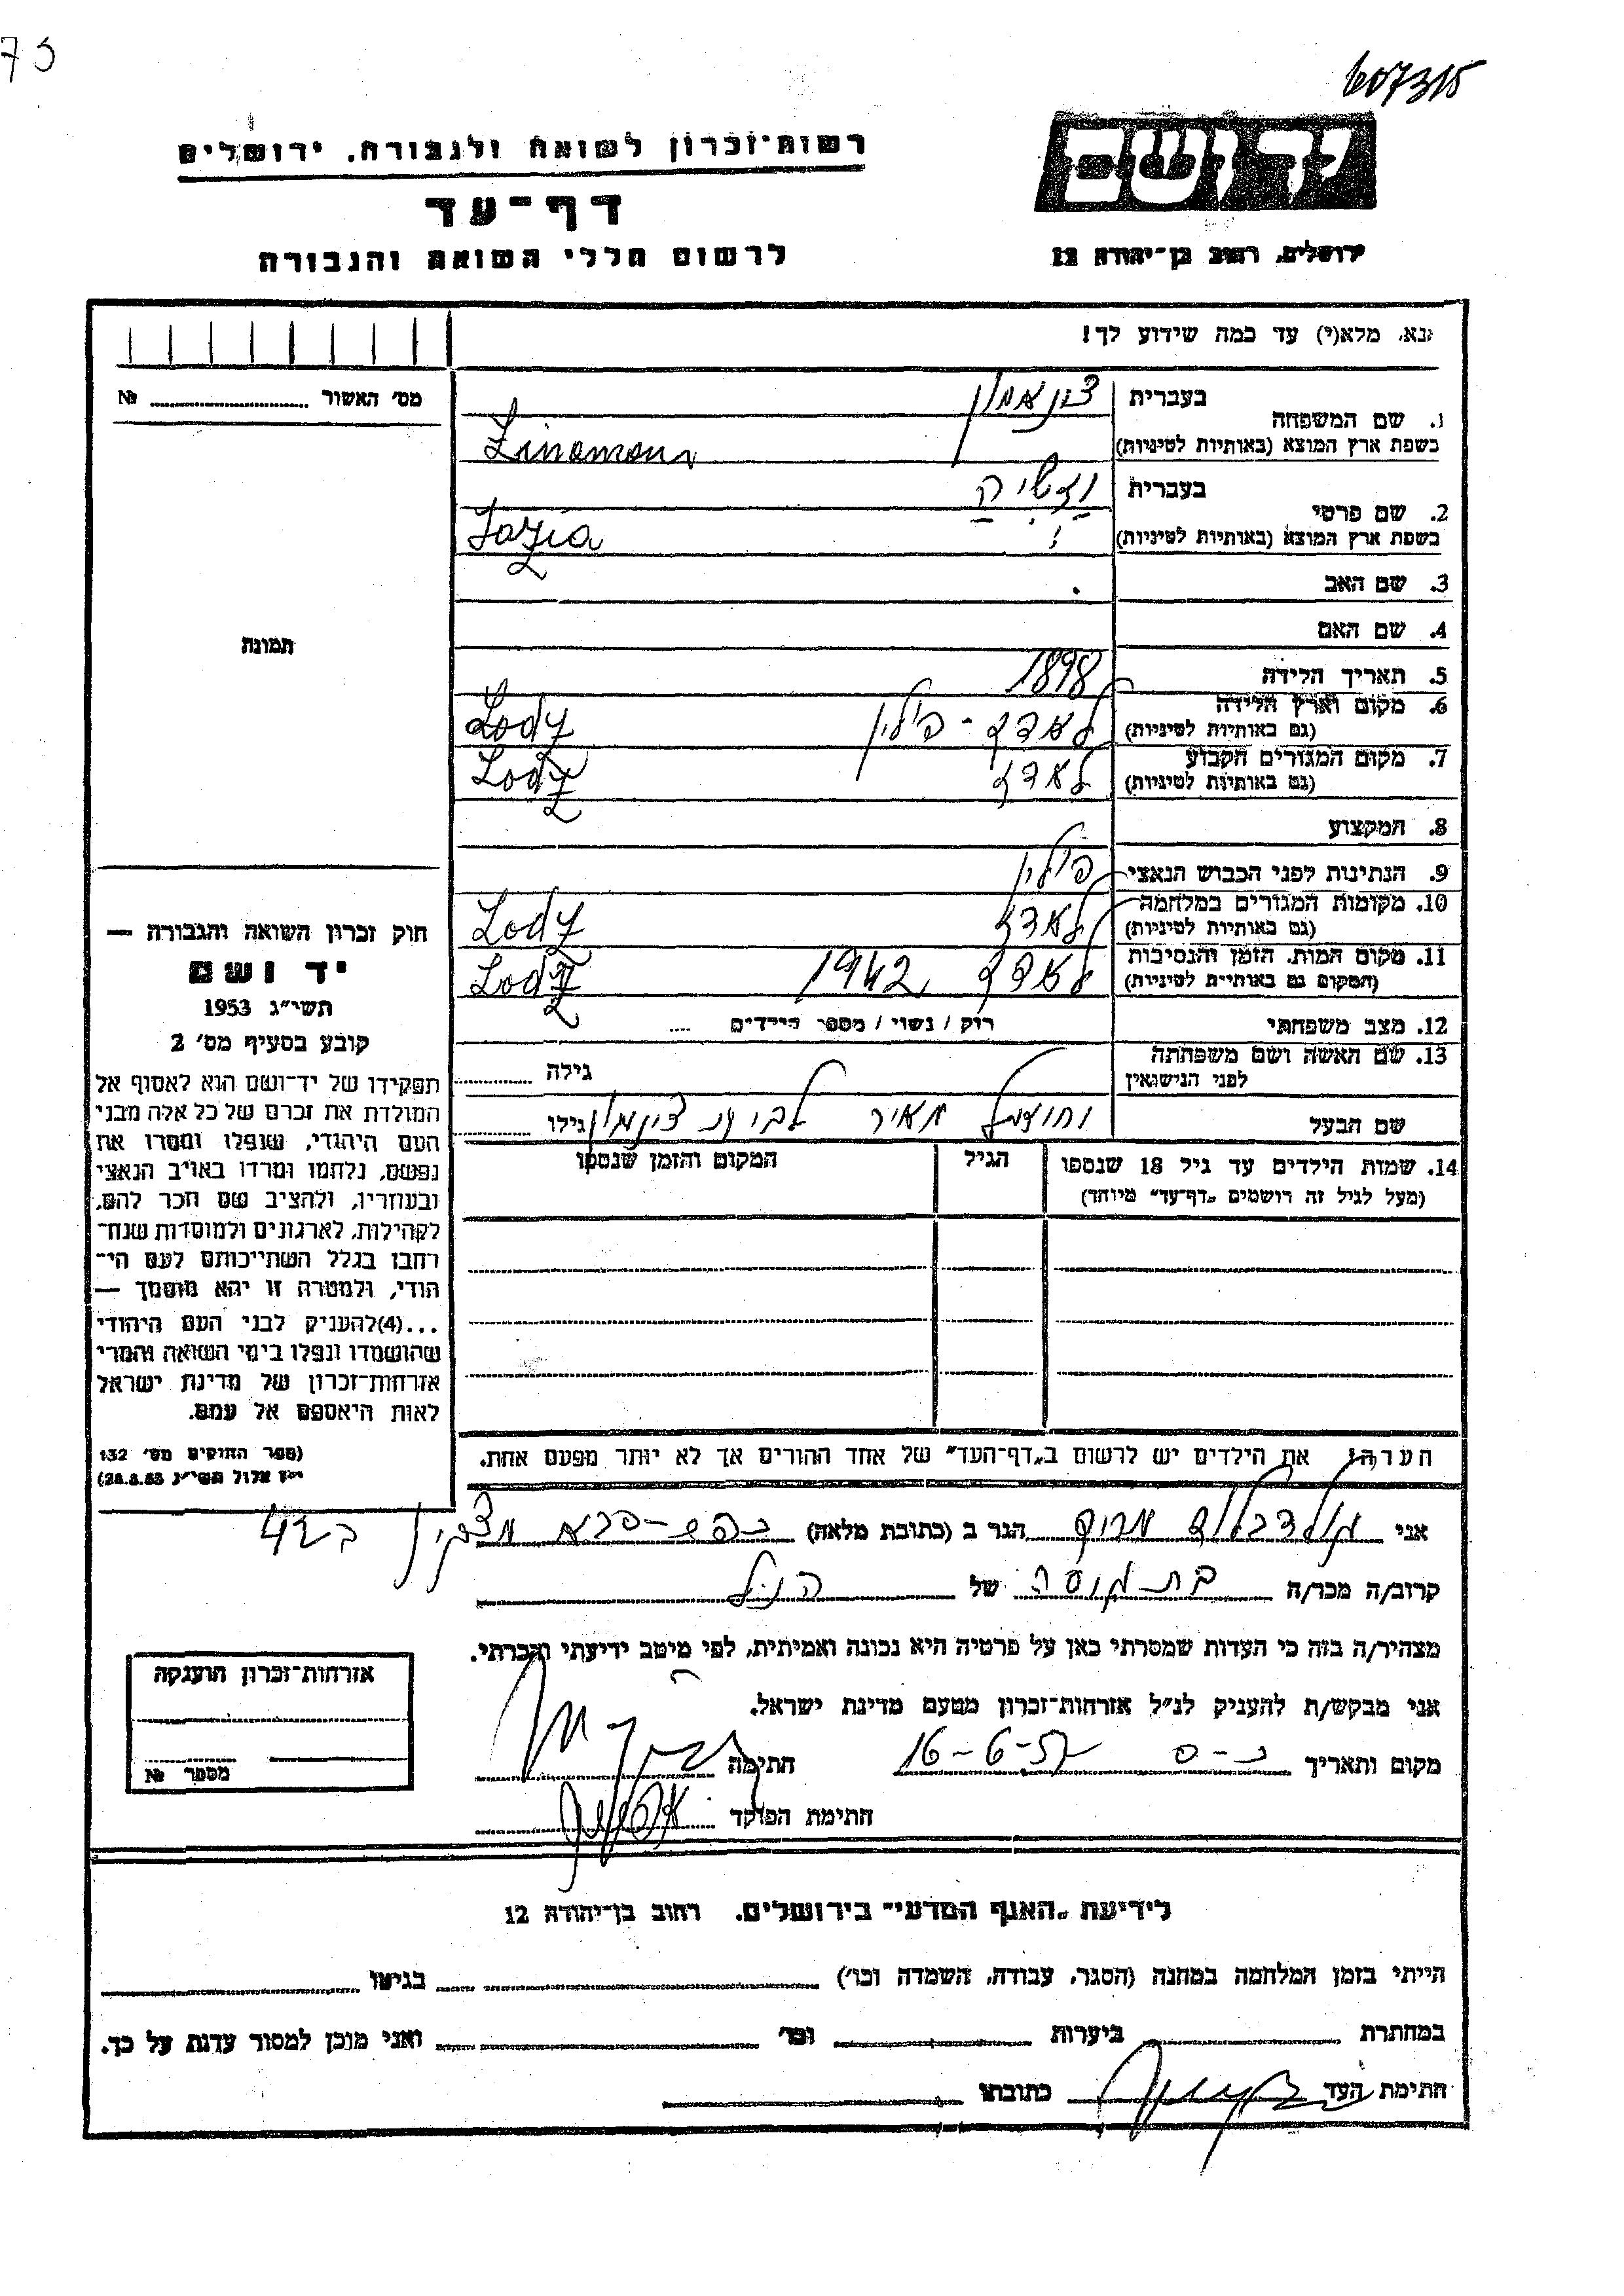 73
607315
יד ושם
רשות־זכרון לשואה ולגבורה, ירושלים
דף־עד
לרשום חללי השואה והגבורה
ירושלים, רחוב בן־יהודה 12
נא, מלא(י) עד כמה שידוע לך!
מס׳ האשור №
1. שם המשפחה
בעברית צינאמון
בשפת ארץ המוצא (באותיות לטיניות) Zinamonn
2. שם פרטי
בעברית
בשפת ארץ המוצא (באותיות לטיניות)
3. שם האב
4. שם האם
תמונה
5. תאריך הלידה 1898
6. מקום וארץ הלידה
(גם באותיות לטיניות) לאדז - פולין Lodz
7. מקום המגורים הקבוע
(גם באותיות לטיניות) לאדז Lodz
8. המקצוע
9. הנתינות לפני הכבוש הנאצי פולין
10. מקומות המגורים במלחמה
(גם באותיות לטיניות) לאדז Lodz
11. מקום המות, הזמן והנסיבות
(המקום גם באותיות לטיניות) לאדז 1942 Lodz
12. מצב משפחתי רוק / נשוי / מספר הילדים ....
13. שם האשה ושם משפחתה
לפני הנישואין גילה
שם הבעל מאיר צינמון גילו
14. שמות הילדים עד גיל 18 שנספו
(מעל לגיל זה רושמים „דף־עד״ מיוחד)
הגיל
המקום והזמן שנספו
חוק זכרון השואה והגבורה —
יד ושם
תשי״ג 1953
קובע בסעיף מס׳ 2
תפקידו של יד־ושם הוא לאסוף אל
המולדת את זכרם של כל אלה מבני
העם היהודי, שנפלו ומסרו את
נפשם, נלחמו ומרדו באויב הנאצי
ובעוזריו, ולהציב שם וזכר להם,
לקהילות, לארגונים ולמוסדות שנח־
רבו בגלל השתייכותם לעם הי־
הודי, ולמטרה זו יהא מוסמך —
...(4)להעניק לבני העם היהודי
שהושמדו ונפלו בימי השואה והמרי
אזרחות־זכרון של מדינת ישראל
לאות היאספם אל עמם.
(ספר החוקים מס׳ 132
י״ז אלול תשי״ג 28.8.53)
הערה: את הילדים יש לרשום ב„דף־העד״ של אחד ההורים אך לא יותר מפעם אחת.
אני הגר ב (כתובת מלאה)
קרוב/ה מכר/ה של הנ״ל
מצהיר/ה בזה כי העדות שמסרתי כאן על פרטיה היא נכונה ואמיתית, לפי מיטב ידיעתי והכרתי.
אני מבקש/ת להעניק לנ״ל אזרחות־זכרון מטעם מדינת ישראל.
מקום ותאריך כ-ס 16-6-57 חתימה
חתימת הפוקד
אזרחות־זכרון הוענקה
מספר №
לידיעת „האגף המדעי״ בירושלים, רחוב בן־יהודה 12
הייתי בזמן המלחמה במחנה (הסגר, עבודה, השמדה וכו׳) בגיטו
במחתרת ביערות וכו׳ ואני מוכן למסור עדות על כך.
חתימת העד כתובתו